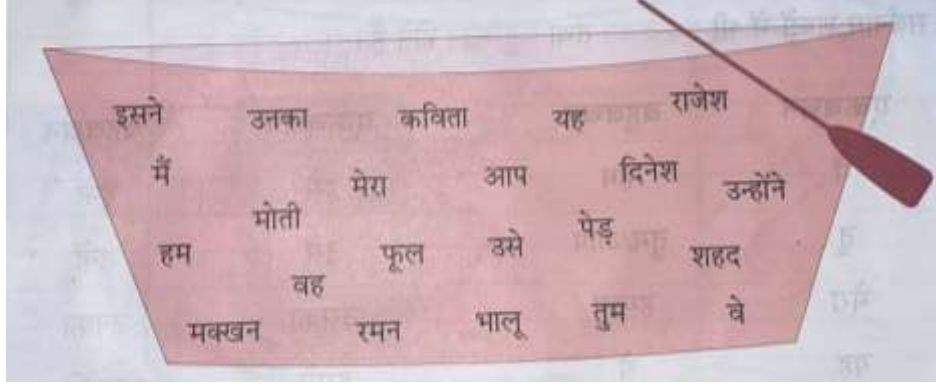 इसने उनका कविता यह राजेश
मैं मेरा आप दिनेश उन्होंने
मोती
हम फूल उसे पेड़ शहद
वह
मक्खन रमन भालू तुम वे